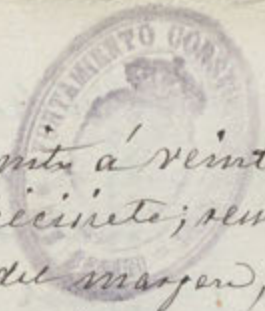 AYUNTAMIENTO CONST
á veint
iecisiete; reu
del margen,